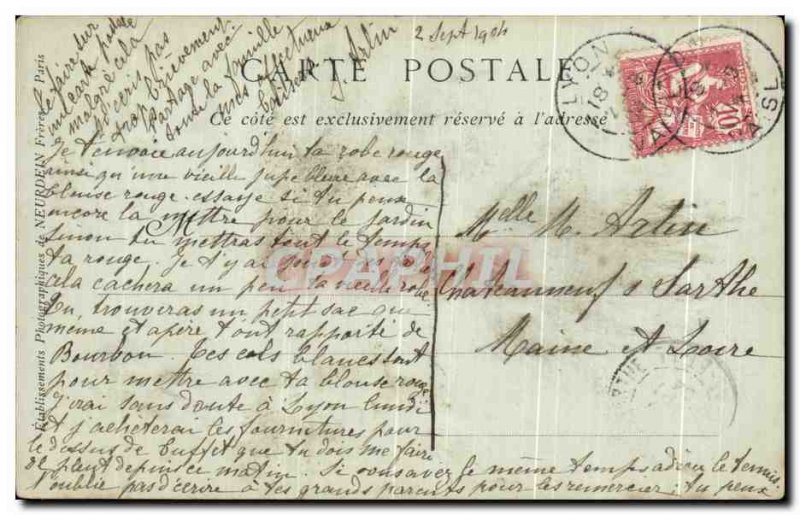 2 Sept 1904
CARTE POSTALE
Ce côté est exclusivement réservé à l'adresse
LYON
18
VAISE
10
Je t'envoie aujourd'hui ta robe rouge
ainsi qu'une vieille jupe bleue avec la
blouse rouge. essaye si tu peux
encore la mettre pour le jardin
sinon tu mettras tout le temps
ta rouge. Je t'y ai
cela cachera un peu la vieille robe
tu trouveras un petit sac que
mémé et a père t'ont rapporté de
Bourbon. Les cols blancs sont
pour mettre avec ta blouse rouge
j'irai sans doute à Lyon lundi
et j'achèterai les fournitures pour
le dessus de buffet que tu dois me faire
il pleut depuis ce matin. Si vous avez le même temps adieu le tennis
N'oublie pas d'écrire à tes grands parents pour les remercier, tu peux
le faire sur
une carte postale
malgré cela
n'écris pas
trop brièvement
Partage avec
toute la famille
mes affectueux
baisers.
J. Artin
M
Melle M. Artin
Chateauneuf s Sarthe
Maine et Loire
CPAPHIL
Établissements Photographiques de NEURDEIN Frères. - Paris